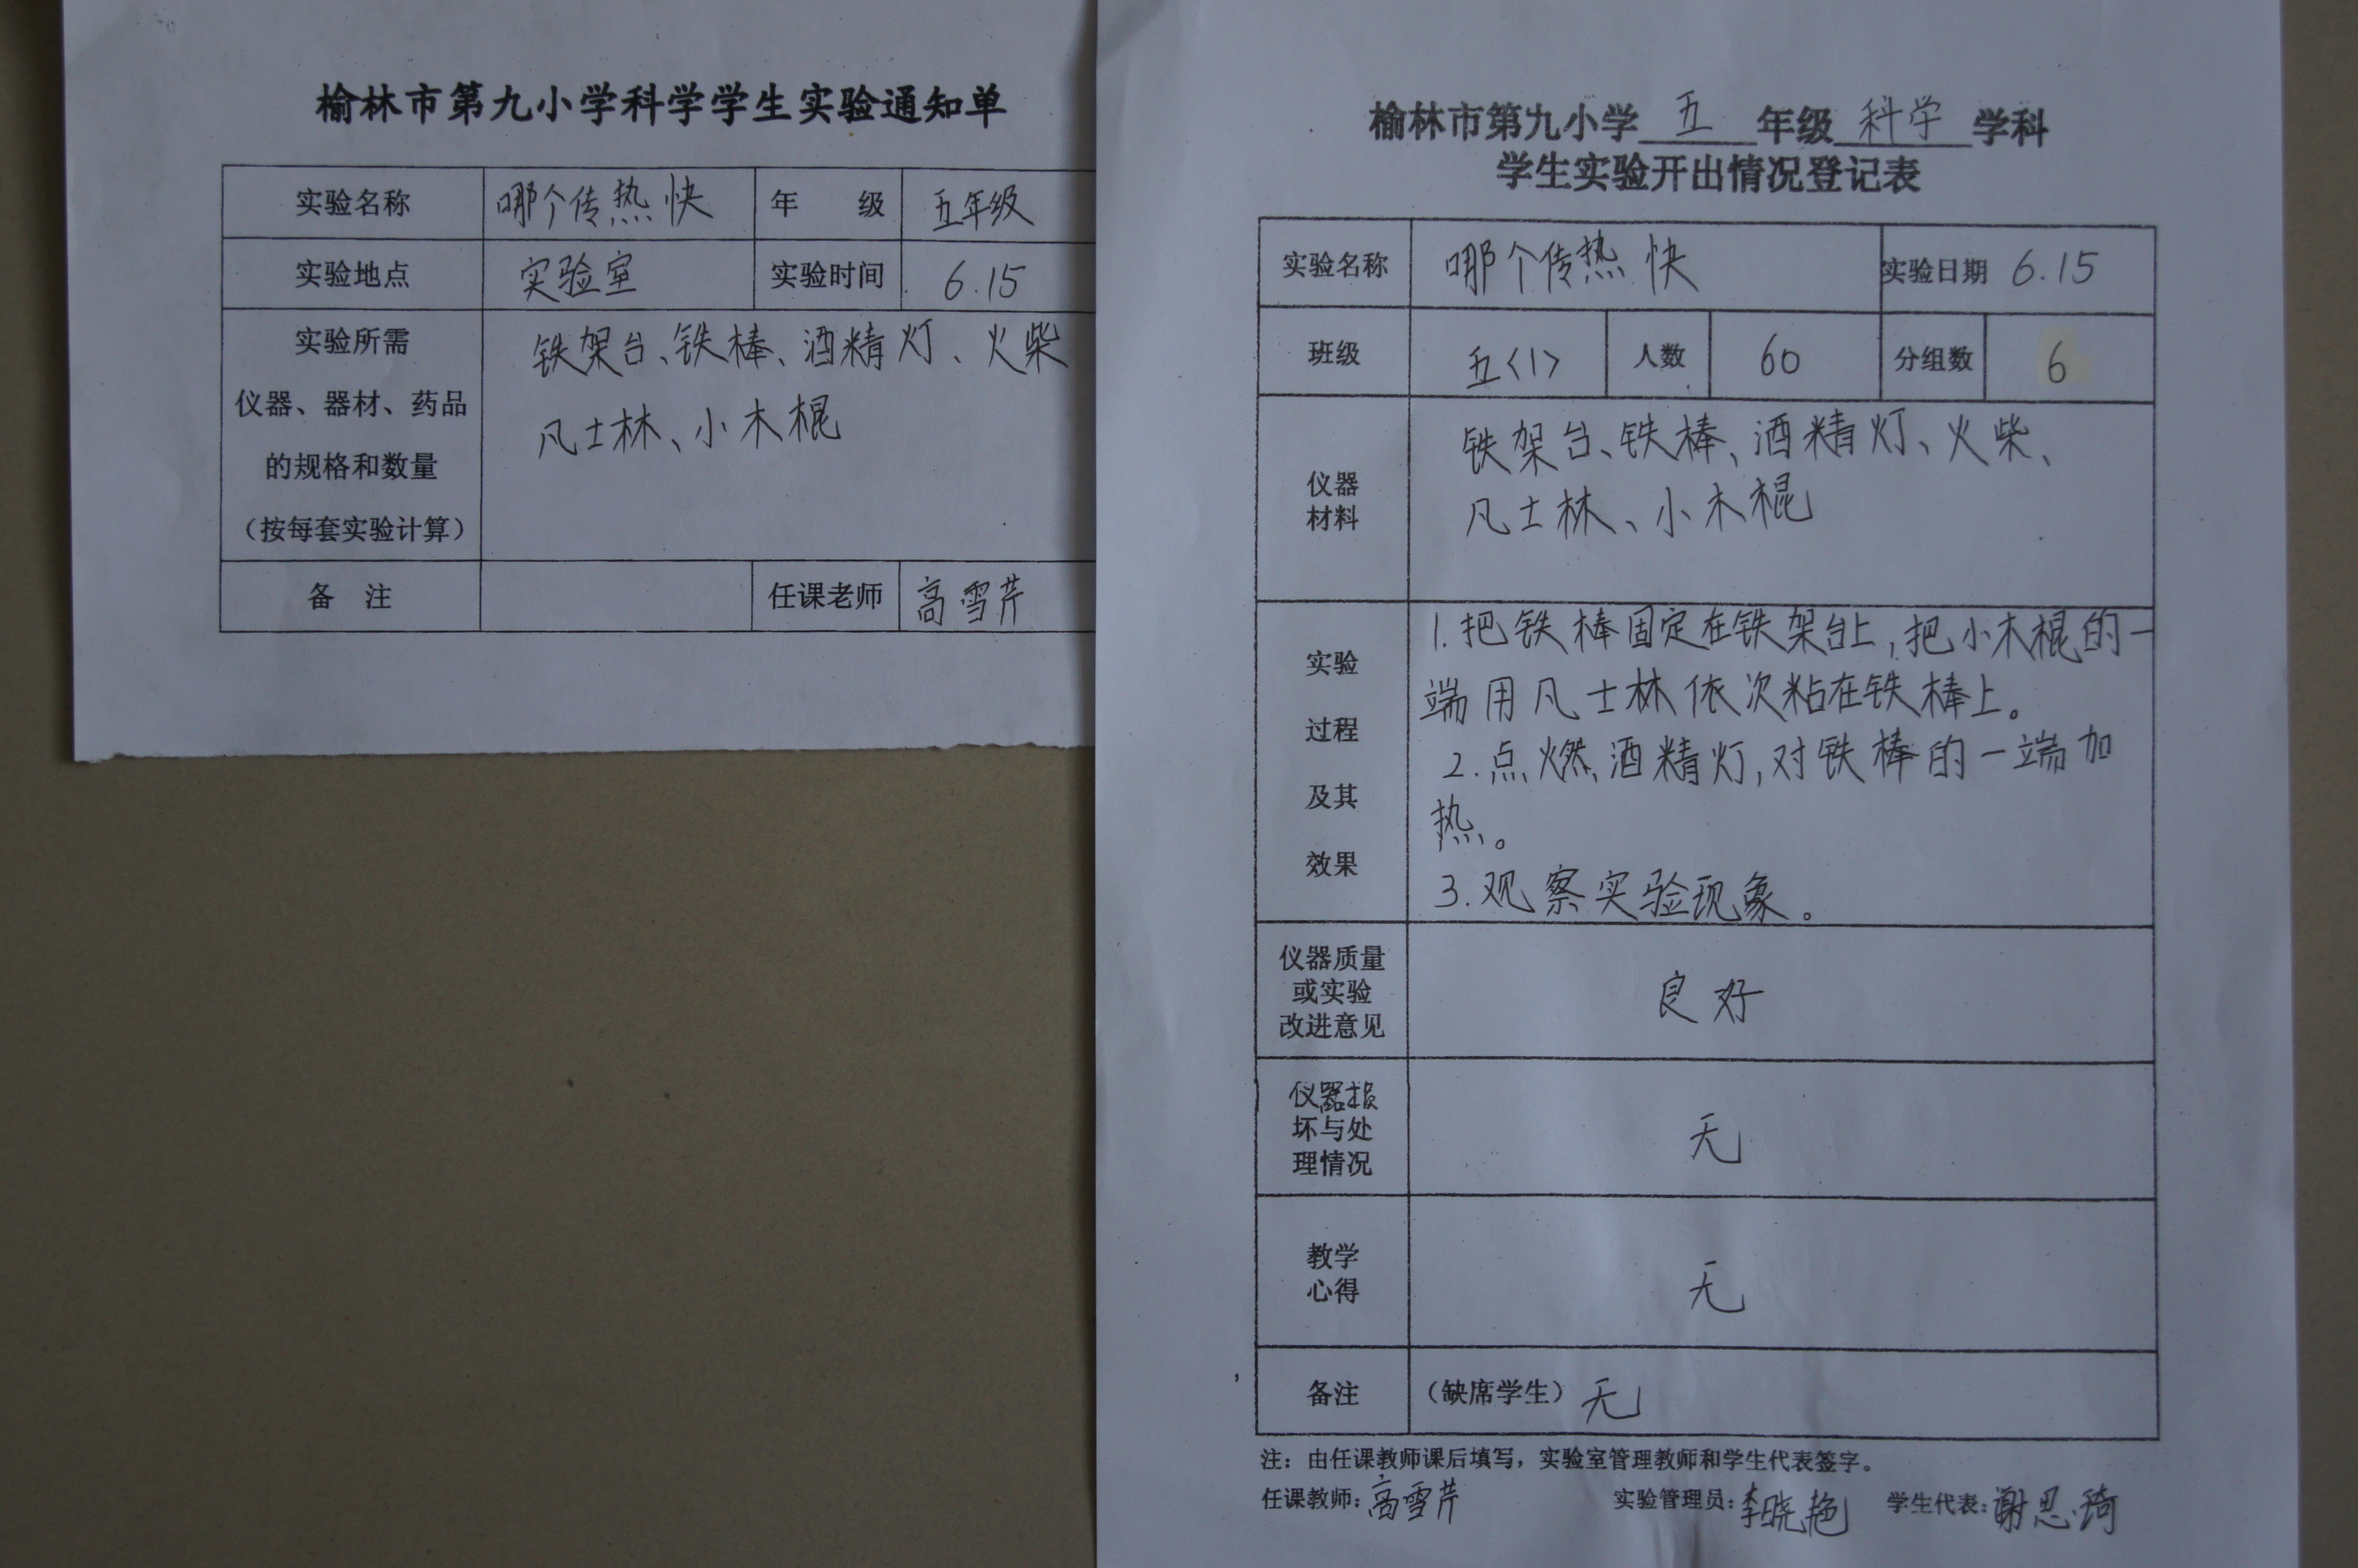 榆林市第九小学科学学生实验通知单
实验名称 哪个传热快 年 级 五年级
实验地点 实验室 实验时间 6.15
实验所需
仪器、器材、药品
的规格和数量
（按每套实验计算）
铁架台、铁棒、酒精灯、火柴
凡士林、小木棍
备 注 任课老师 高雪芹
榆林市第九小学 五 年级 科学 学科
学生实验开出情况登记表
实验名称 哪个传热快 实验日期 6.15
班级 五〈1〉 人数 60 分组数 6
仪器
材料
铁架台、铁棒、酒精灯、火柴、
凡士林、小木棍
实验
过程
及其
效果
1.把铁棒固定在铁架台上,把小木棍的一
端用凡士林依次粘在铁棒上。
2.点燃酒精灯,对铁棒的一端加
热。
3.观察实验现象。
仪器质量
或实验
改进意见
良好
仪器损
坏与处
理情况
无
教学
心得
无
备注 （缺席学生）无
注：由任课教师课后填写，实验室管理教师和学生代表签字。
任课教师：高雪芹 实验管理员：李晓艳 学生代表：谢思琦